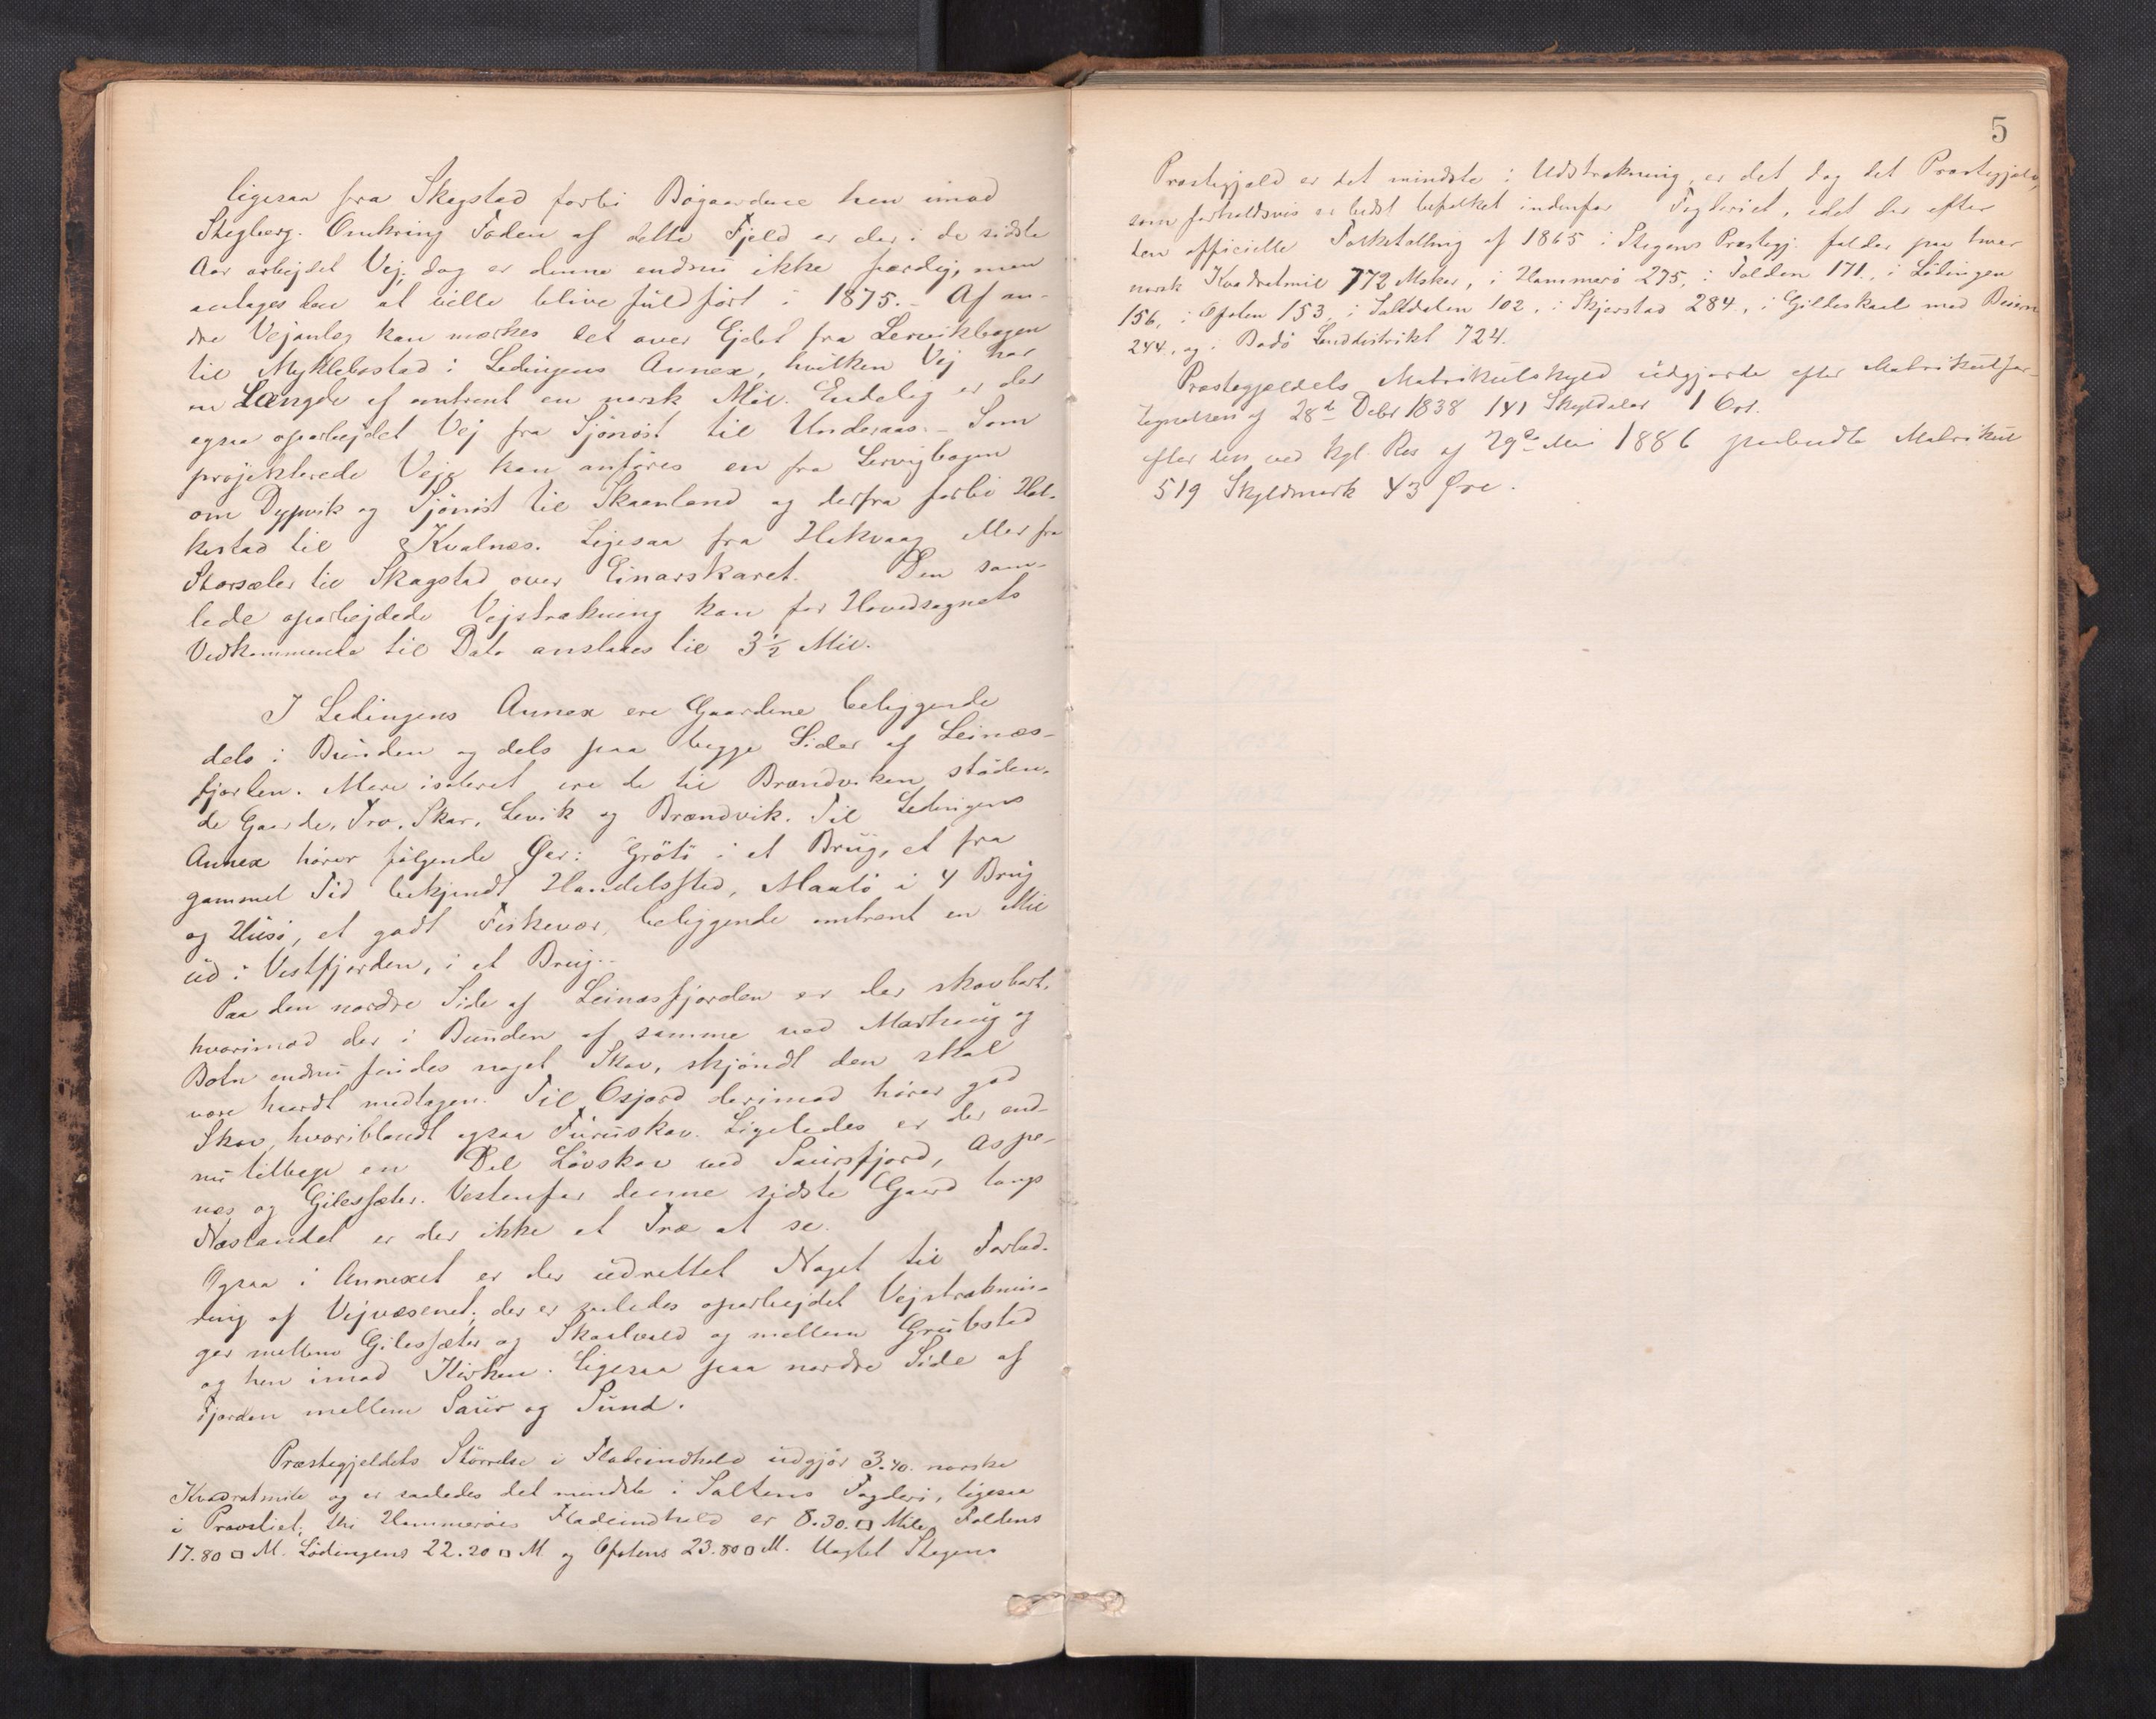 ligesaa fra Skagstad forbi Bøgaardene hen imod
Stegberg. Omkring Foden af dette Fjeld er der i de sidste
Aar arbejdet Vej, dog er denne endnu ikke færdig, men
antages den at ville blive fuldført i 1875. - Af an-
dre Vejanlæg kan mærkes det over Ejdet fra Lervikbogen
til Myklebostad i Ledingens Annex, hvilken Vej har
en Længde af omtrent en norsk Mil. Endelig er der
ogsaa oparbejdet Vej fra Sjønøst til Underaas. - Som
projekterede Veje kan anføres en fra Lervigbogen
om Dypvik og Sjønøst til Skaanland og derfra forbi Hol-
kestad til Kvalnæs. Ligesaa fra Hakvaag eller fra
Storsæter til Skagstad over Einarskaret. Den sam-
lede oparbejdede Vejstrækning kan for Hovedsognets
Vedkommende til Dato anslaaes til 3 1/2 Mil.
I Ledingens Annex ere Gaardene beliggende
dels i Bunden og dels paa begge Sider af Leinæs-
fjorden. Mere isoleret ere de til Brændviken støden-
de Gaarde, Trø, Skar, Levik og Brændvik. Til Ledingens
Annex hører følgende Øer: Grøtø i et Brug, et fra
gammel Tid bekjendt Handelssted, Maalø i 4 Brug
og Husø, et godt Fiskevær, beliggende omtrent en Mil
ud i Vestfjorden, i et Brug. -
Paa den nordre Side af Leinæsfjorden er der skovbart,
hvorimod der i Bunden af samme ved Mørkhaug og
Botn endnu findes noget Skov, skjøndt den skal
være haardt medtagen. Til Osjord derimod hører god
Skov, hvoriblandt ogsaa Furuskov. Ligeledes er der end-
nu tilbage en Del Løvskov ved Saursfjord, Aspe-
næs og Gilessæter. Vestenfor denne sidste Gaard langs
Næslandet er der ikke et Træ at se.
Ogsaa i Annexet er der udrettet Noget til Forbed-
ring af Vejvæsenet; der er saaledes oparbejdet Vejstræknin-
ger mellem Gilessæter og Skaalvold og mellem Grubstad
og hen imod Kirken. Ligesaa paa nordre Side af
Fjorden mellem Saur og Sund.
Præstegjeldets Størrelse i Fladeindhold udgjør 3.40. norske
Kvadratmile og er saaledes det mindste i Saltens Fogderi, ligesaa
i Provstiet, thi Hammerøes Fladeindhold er 8.30. □ Mile, Foldens
17.80 □ M. Lødingens 22.20 □ M og Ofotens 23.80 □ M. Uagtet Stegens
5
Præstegjeld er det mindste i Udstrækning, er det dog det Præstegjeld,
som forholdsvis er bedst befolket indenfor Fogderiet, idet der efter
den officielle Folketælling af 1865 i Stegens Præstegj. falder paa hver
norsk Kvadratmil 772 Msker, i Hammerø 275, i Folden 171, i Lødingen
156, i Ofoten 153, i Saltdalen 102, i Skjerstad 284, i Gildeskaal med Beiern
244, og i Bodø Landdistrikt 724.
Præstegjeldets Matrikulskyld udgjorde efter Matrikulfor-
tegnelsen af 28de Decbr 1838 141 Skylddaler 1 Ort.
efter den ved Kgl. Res af 29de Mai 1886 paabudte Matrikul
519 Skyldmark 43 Øre.